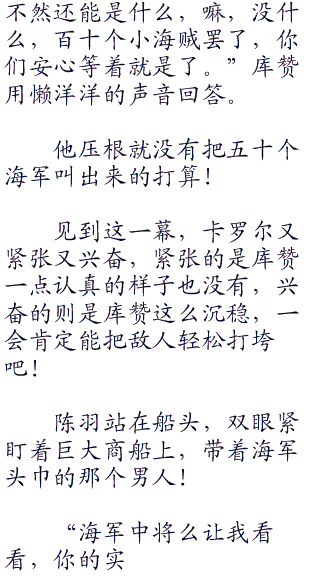 不然还能是什么，嘛，没什
么，百十个小海贼罢了，你
们安心等着就是了。”库赞
用懒洋洋的声音回答。
他压根就没有把五十个
海军叫出来的打算！
见到这一幕，卡罗尔又
紧张又兴奋，紧张的是库赞
一点认真的样子也没有，兴
奋的则是库赞这么沉稳，一
会肯定能把敌人轻松打垮
吧！
陈羽站在船头，双眼紧
盯着巨大商船上，带着海军
头巾的那个男人！
“海军中将么让我看
看，你的实